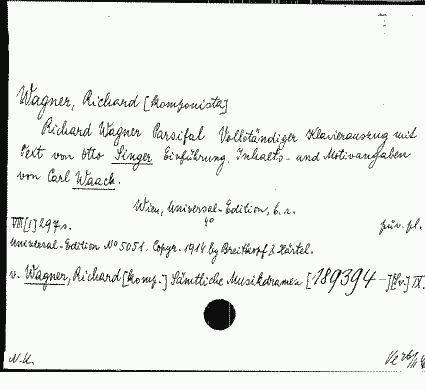 Wagner, Richard [komponista]
Richard Wagner Parsifal Vollständiger Klavierauszug mit
Text von Otto Singer Einführung. Inhalts- und Motivangaben
von Carl Waack.
Wien, Universal-Edition, b. r.
4°
VIII [1] 297 s. pův. pl.
Universal-Edition No 5051. Copyr. 1914 by Breitkopf & Härtel.
v. Wagner, Richard [komp.] Sämtliche Musikdramen [189394-][Sv.] IX.
N.U.